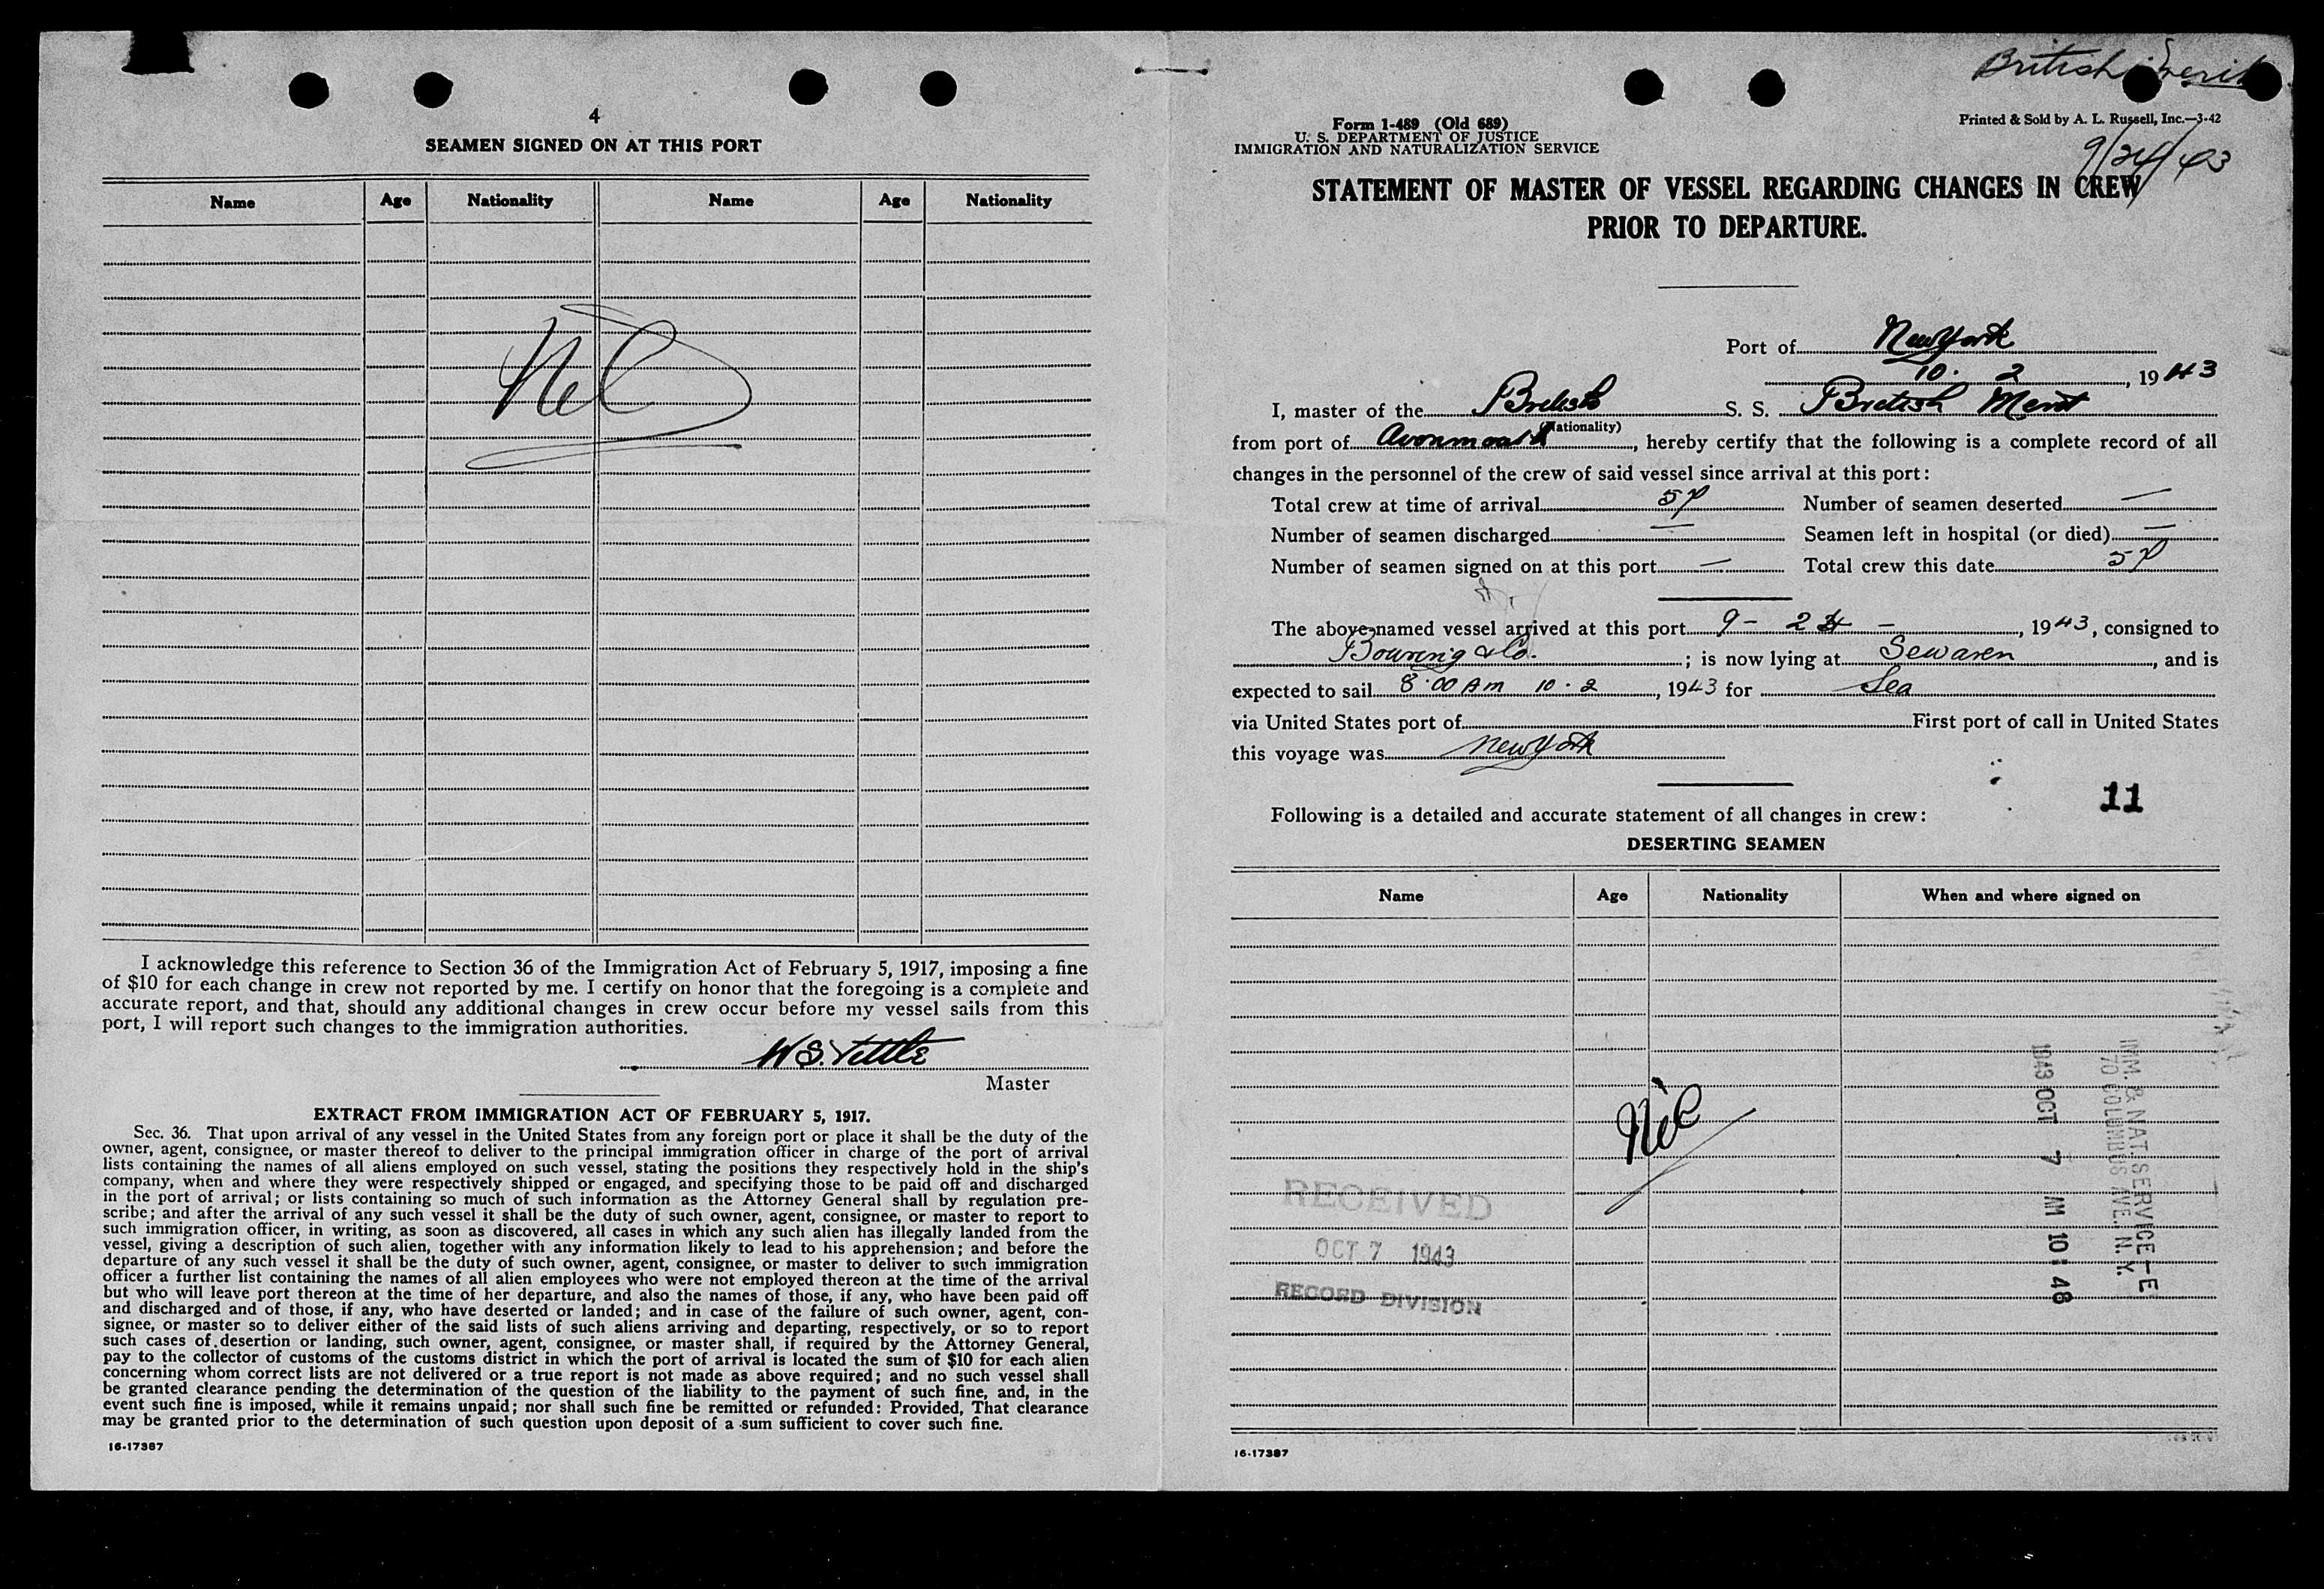 4
SEAMEN SIGNED ON AT THIS PORT
Name Age Nationality Name Age Nationality
Nil
I acknowledge this reference to Section 36 of the Immigration Act of February 5, 1917, imposing a fine
of $10 for each change in crew not reported by me. I certify on honor that the foregoing is a complete and
accurate report, and that, should any additional changes in crew occur before my vessel sails from this
port, I will report such changes to the immigration authorities.
W S.
Master
EXTRACT FROM IMMIGRATION ACT OF FEBRUARY 5, 1917.
Sec. 36. That upon arrival of any vessel in the United States from any foreign port or place it shall be the duty of the
owner, agent, consignee, or master thereof to deliver to the principal immigration officer in charge of the port of arrival
lists containing the names of all aliens employed on such vessel, stating the positions they respectively hold in the ship's
company, when and where they were respectively shipped or engaged, and specifying those to be paid off and discharged
in the port of arrival; or lists containing so much of such information as the Attorney General shall by regulation pre-
scribe; and after the arrival of any such vessel it shall be the duty of such owner, agent, consignee, or master to report to
such immigration officer, in writing, as soon as discovered, all cases in which any such alien has illegally landed from the
vessel, giving a description of such alien, together with any information likely to lead to his apprehension; and before the
departure of any such vessel it shall be the duty of such owner, agent, consignee, or master to deliver to such immigration
officer a further list containing the names of all alien employees who were not employed thereon at the time of the arrival
but who will leave port thereon at the time of her departure, and also the names of those, if any, who have been paid off
and discharged and of those, if any, who have deserted or landed; and in case of the failure of such owner, agent, con-
signee, or master so to deliver either of the said lists of such aliens arriving and departing, respectively, or so to report
such cases of desertion or landing, such owner, agent, consignee, or master shall, if required by the Attorney General,
pay to the collector of customs of the customs district in which the port of arrival is located the sum of $10 for each alien
concerning whom correct lists are not delivered or a true report is not made as above required; and no such vessel shall
be granted clearance pending the determination of the question of the liability to the payment of such fine, and, in the
event such fine is imposed, while it remains unpaid; nor shall such fine be remitted or refunded: Provided, That clearance
may be granted prior to the determination of such question upon deposit of a sum sufficient to cover such fine.
16-17387
British
Form I-489 (Old 689)
U. S. DEPARTMENT OF JUSTICE
IMMIGRATION AND NATURALIZATION SERVICE
Printed & Sold by A. L. Russell, Inc.—3-42
9/24/43
STATEMENT OF MASTER OF VESSEL REGARDING CHANGES IN CREW
PRIOR TO DEPARTURE.
Port of New York
10 . 2, 1943
I, master of the British S. S. British Merit
(Nationality)
from port of Avonmouth, hereby certify that the following is a complete record of all
changes in the personnel of the crew of said vessel since arrival at this port:
Total crew at time of arrival 57 Number of seamen deserted —
Number of seamen discharged — Seamen left in hospital (or died) —
Number of seamen signed on at this port — Total crew this date 57
The above-named vessel arrived at this port 9 - 24 -, 1943, consigned to
Bowring & Co.; is now lying at Sewaren, and is
expected to sail 8.00 AM 10 . 2, 1943 for Sea
via United States port of First port of call in United States
this voyage was New York
11
Following is a detailed and accurate statement of all changes in crew:
DESERTING SEAMEN
Name Age Nationality When and where signed on
Nil
RECEIVED
OCT 7 1943
RECORD DIVISION
IMM. & NAT. SERVICE-E
70 COLUMBUS AVE. N.Y.
1943 OCT 7 AM 10:48
16-17387